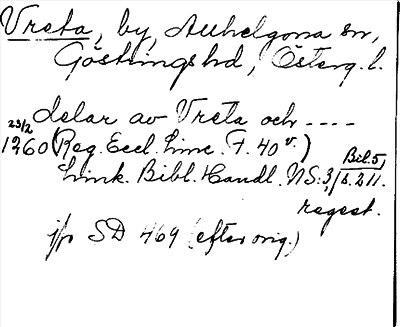 Vreta, by, Allhelgona sn,
Göstrings hd, Österg. l.
delar av Vreta och ----
23/2
1260 (Reg. Eccl. Linc. F. 40 v.)
Link. Bibl. Handl. NS: 3, Bil. 5, s. 211.
regest.
jfr SD 469 (efter orig.)